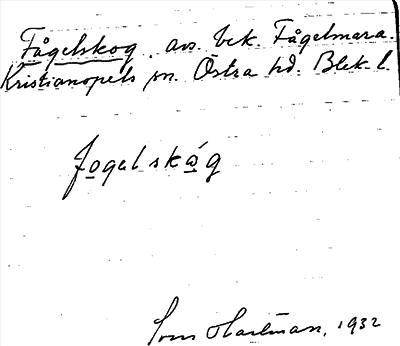 Fågelskog, avs. bek. Fågelmara.
Kristianopels sn. Östra hd. Blek. l.
fogelskåg
Hartman, 1932